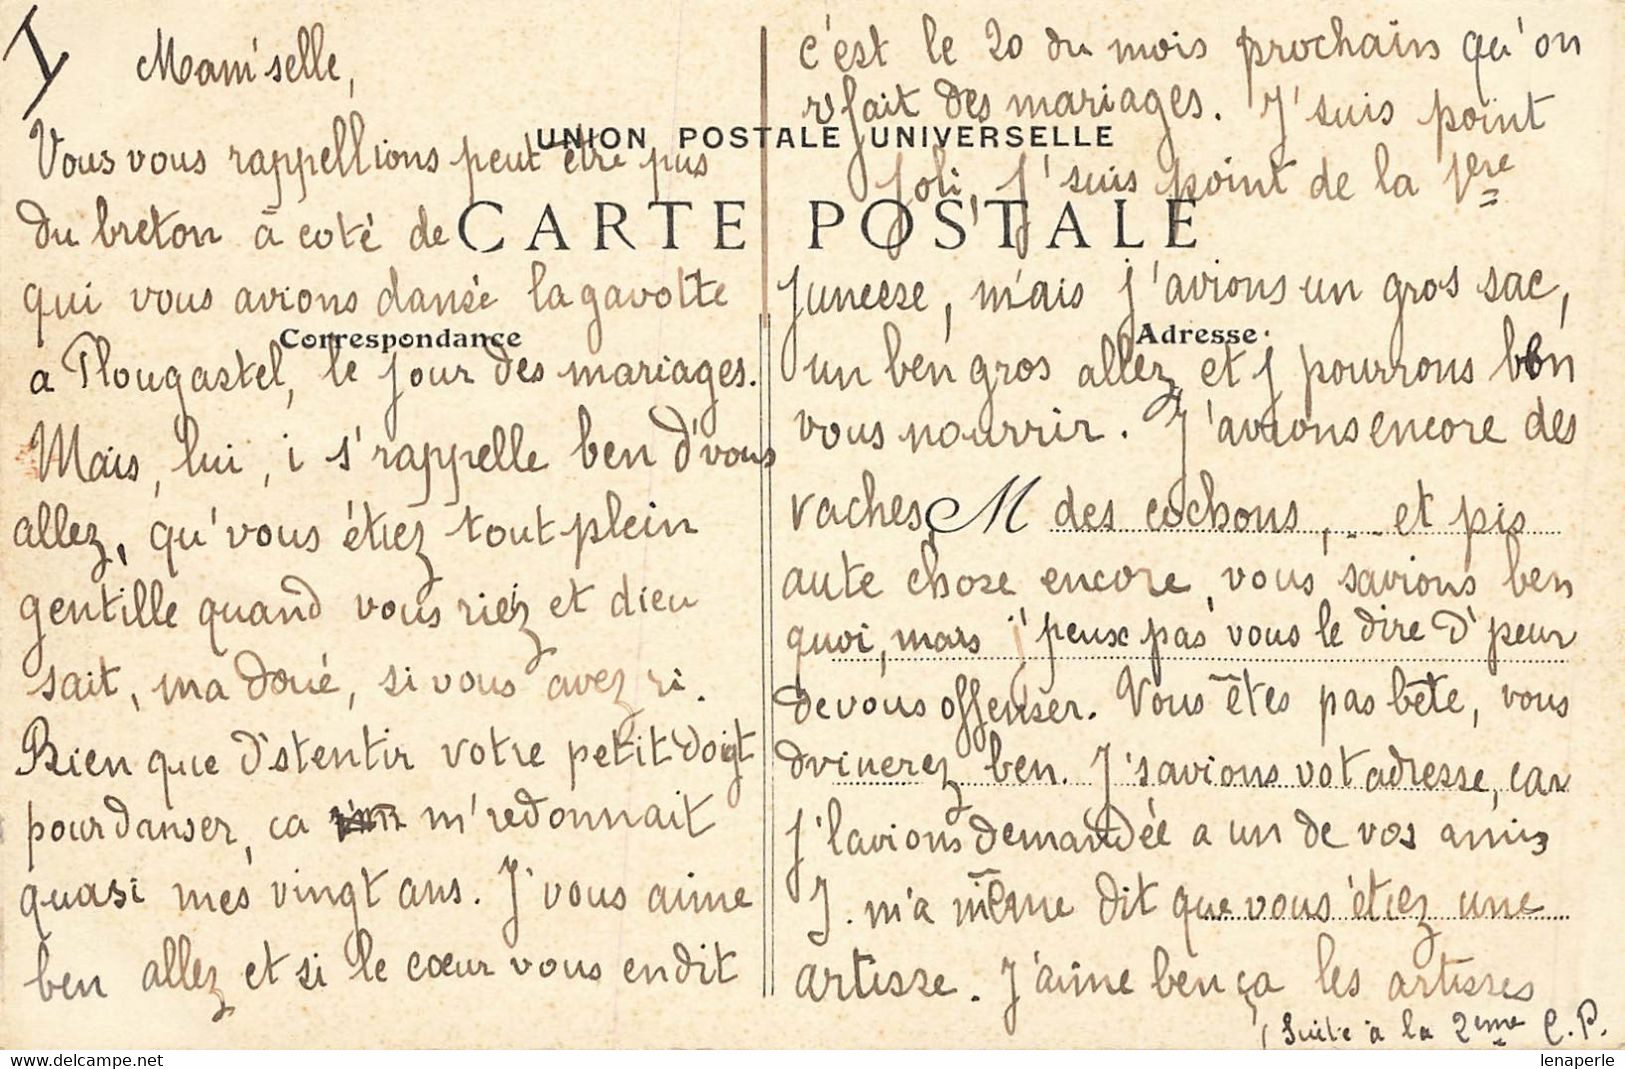 I
Mam'selle,
Vous vous rappellions peut être pus
du breton à coté de
qui vous avions dansé la gavotte
a Plougastel, le jour des mariages.
Mais, lui, i s'rappelle ben d'vous
allez, qu'vous étiez tout plein
gentille quand vous riez et dieu
sait, ma doué, si vous avez ri.
Rien que d'stentir votre petit doigt
pour danser, ca m'redonnait
quasi mes vingt ans. J'vous aime
ben allez et si le cœur vous en dit
c'est le 20 du mois prochain qu'on
r'fait des mariages. J'suis point
joli, j'suis point de la 1ère
juneese, mais j'avions un gros sac,
un ben gros allez et j pourrons ben
vous nourrir. J'avions encore des
vaches, des cochons, ... et pis
aute chose encore, vous savions ben
quoi, mais j'peux pas vous le dire d'peur
de vous offenser. Vous êtes pas bête, vous
dvinerez ben. J'savions vot adresse, car
j'l'avions demandée a un de vos amis
I. m'a même dit que vous étiez une
artisse. J'aime ben ça les artisses
(Suite à la 2eme C.P.
UNION POSTALE UNIVERSELLE
CARTE POSTALE
Correspondance
Adresse
M
lenaperle